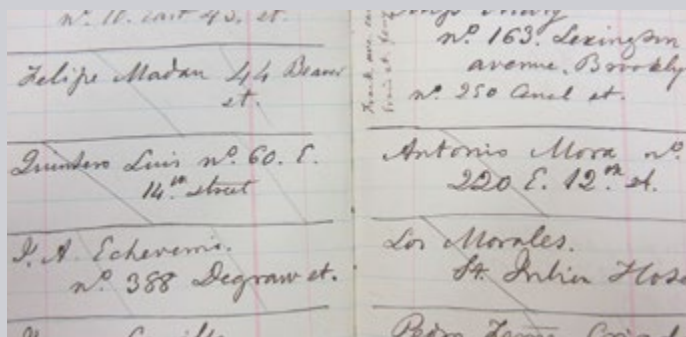 nº. 10. East 43. st.
Felipe Madan 44 Beaver
st.
Quintero Luis nº. 60. E.
14.th street
P. A. Echeverria.
nº. 388 Degraw st.
nº. 163. Lexington
avenue. Brookly
nº. 250 Canal st.
Antonio Mora nº.
220 E. 12.th st.
Los Morales.
St. Julien Hose
Pedro